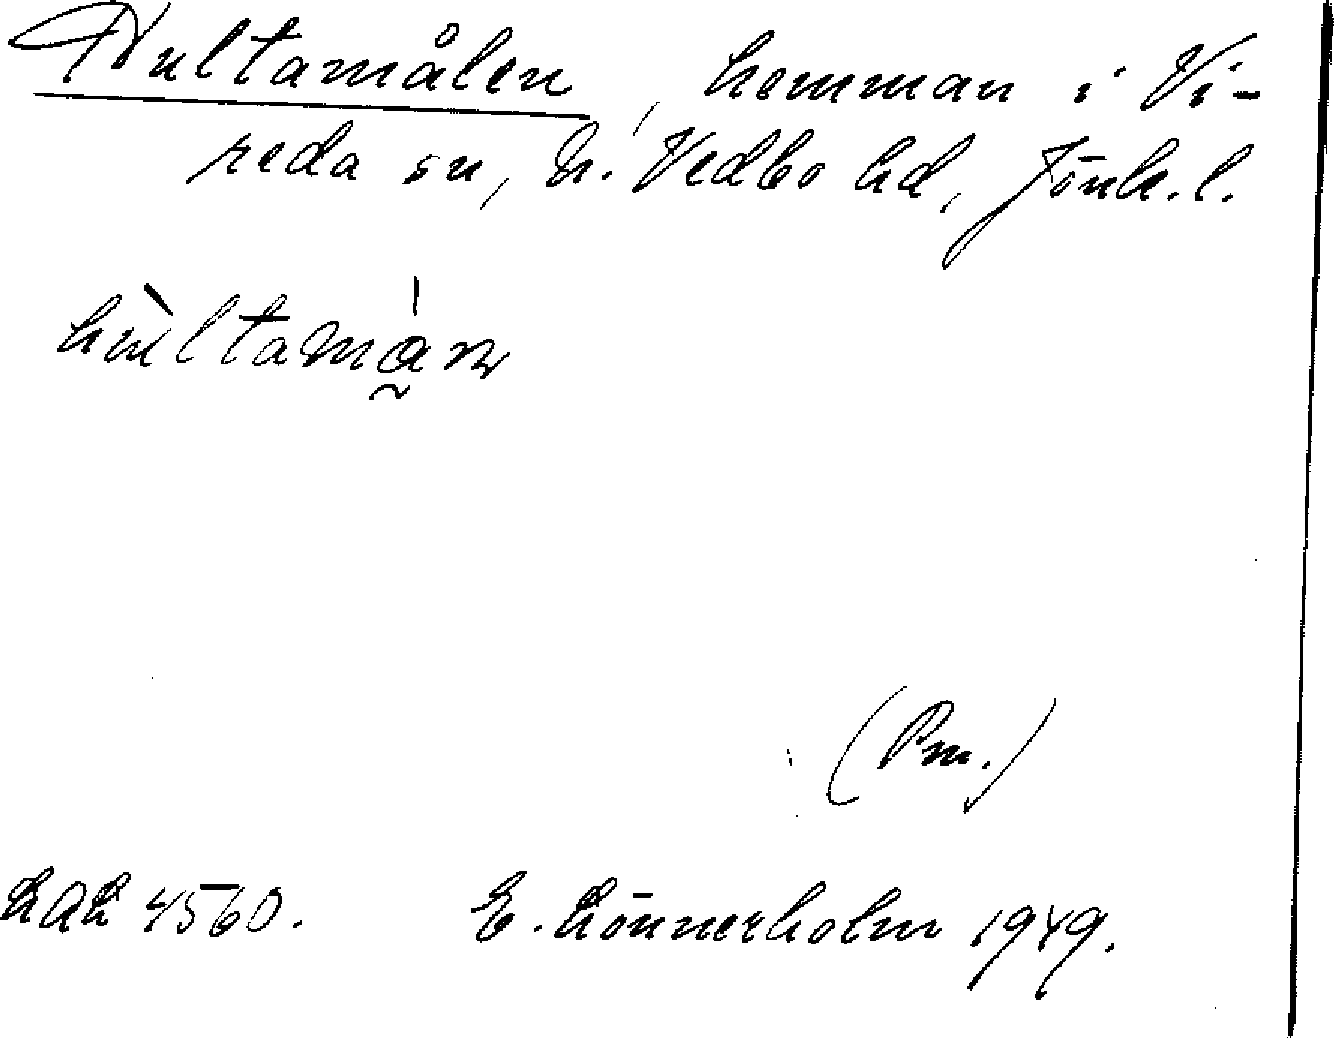 Hultamålen, hemman i Vi-
reda sn, N. Vedbo hd, Jönk. l.
hùltamån
(Pm.)
LAL 4560. E. Lönnerholm 1949.